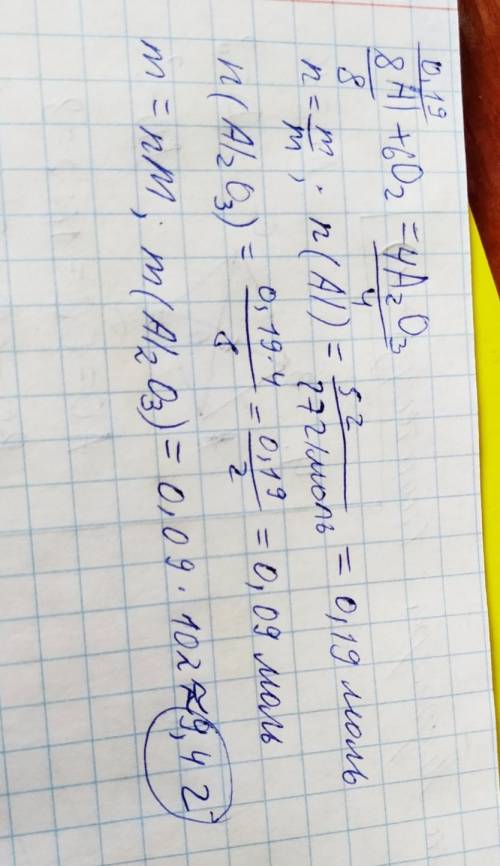 0,19
8Al + 6O₂ = 4A₂O₃
8 4
n = m/m; n(Al) = 5г/27г/моль = 0,19 моль
n(Al₂O₃) = 0,19·4/8 = 0,19/2 = 0,09 моль
m = nM; m(Al₂O₃) = 0,09·102≈9,4г